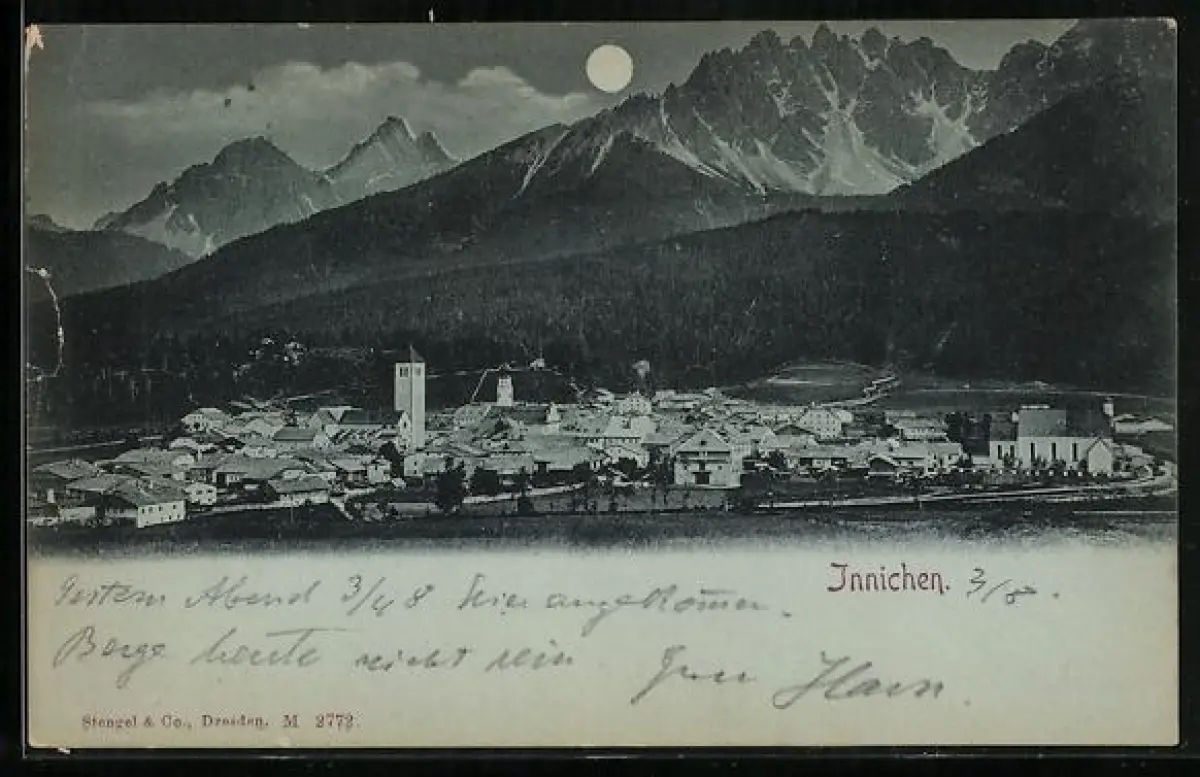 Innichen. 3/8.
Gestern Abend 3/48 hier angekommen.
Berge heute nicht rein
Stengel & Co., Dresden. M 2772.